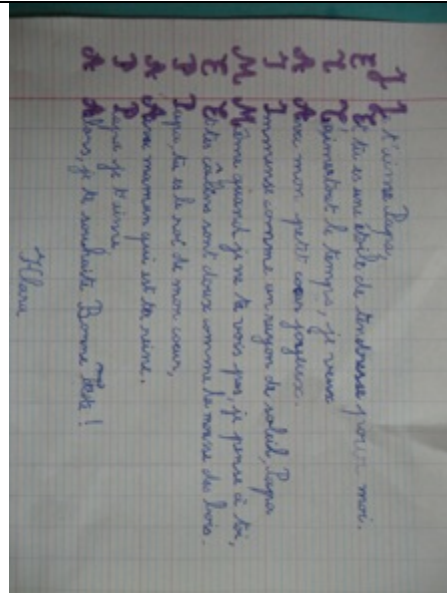 J Je t'aime Papa,
E Et tu es une étoile de tendresse pour moi.
T T'aimer tout le temps, je veux
A Avec mon petit cœur joyeux.
I Immense comme un rayon de soleil, Papa
M Même quand je ne te vois pas, je pense à toi,
E Et tes câlins sont doux comme la mousse des bois.
P Papa, tu es le roi de mon cœur,
A Avec maman qui est ta reine.
P Papa je t'aime,
A Alors, je te souhaite Bonne Fête !
Klara